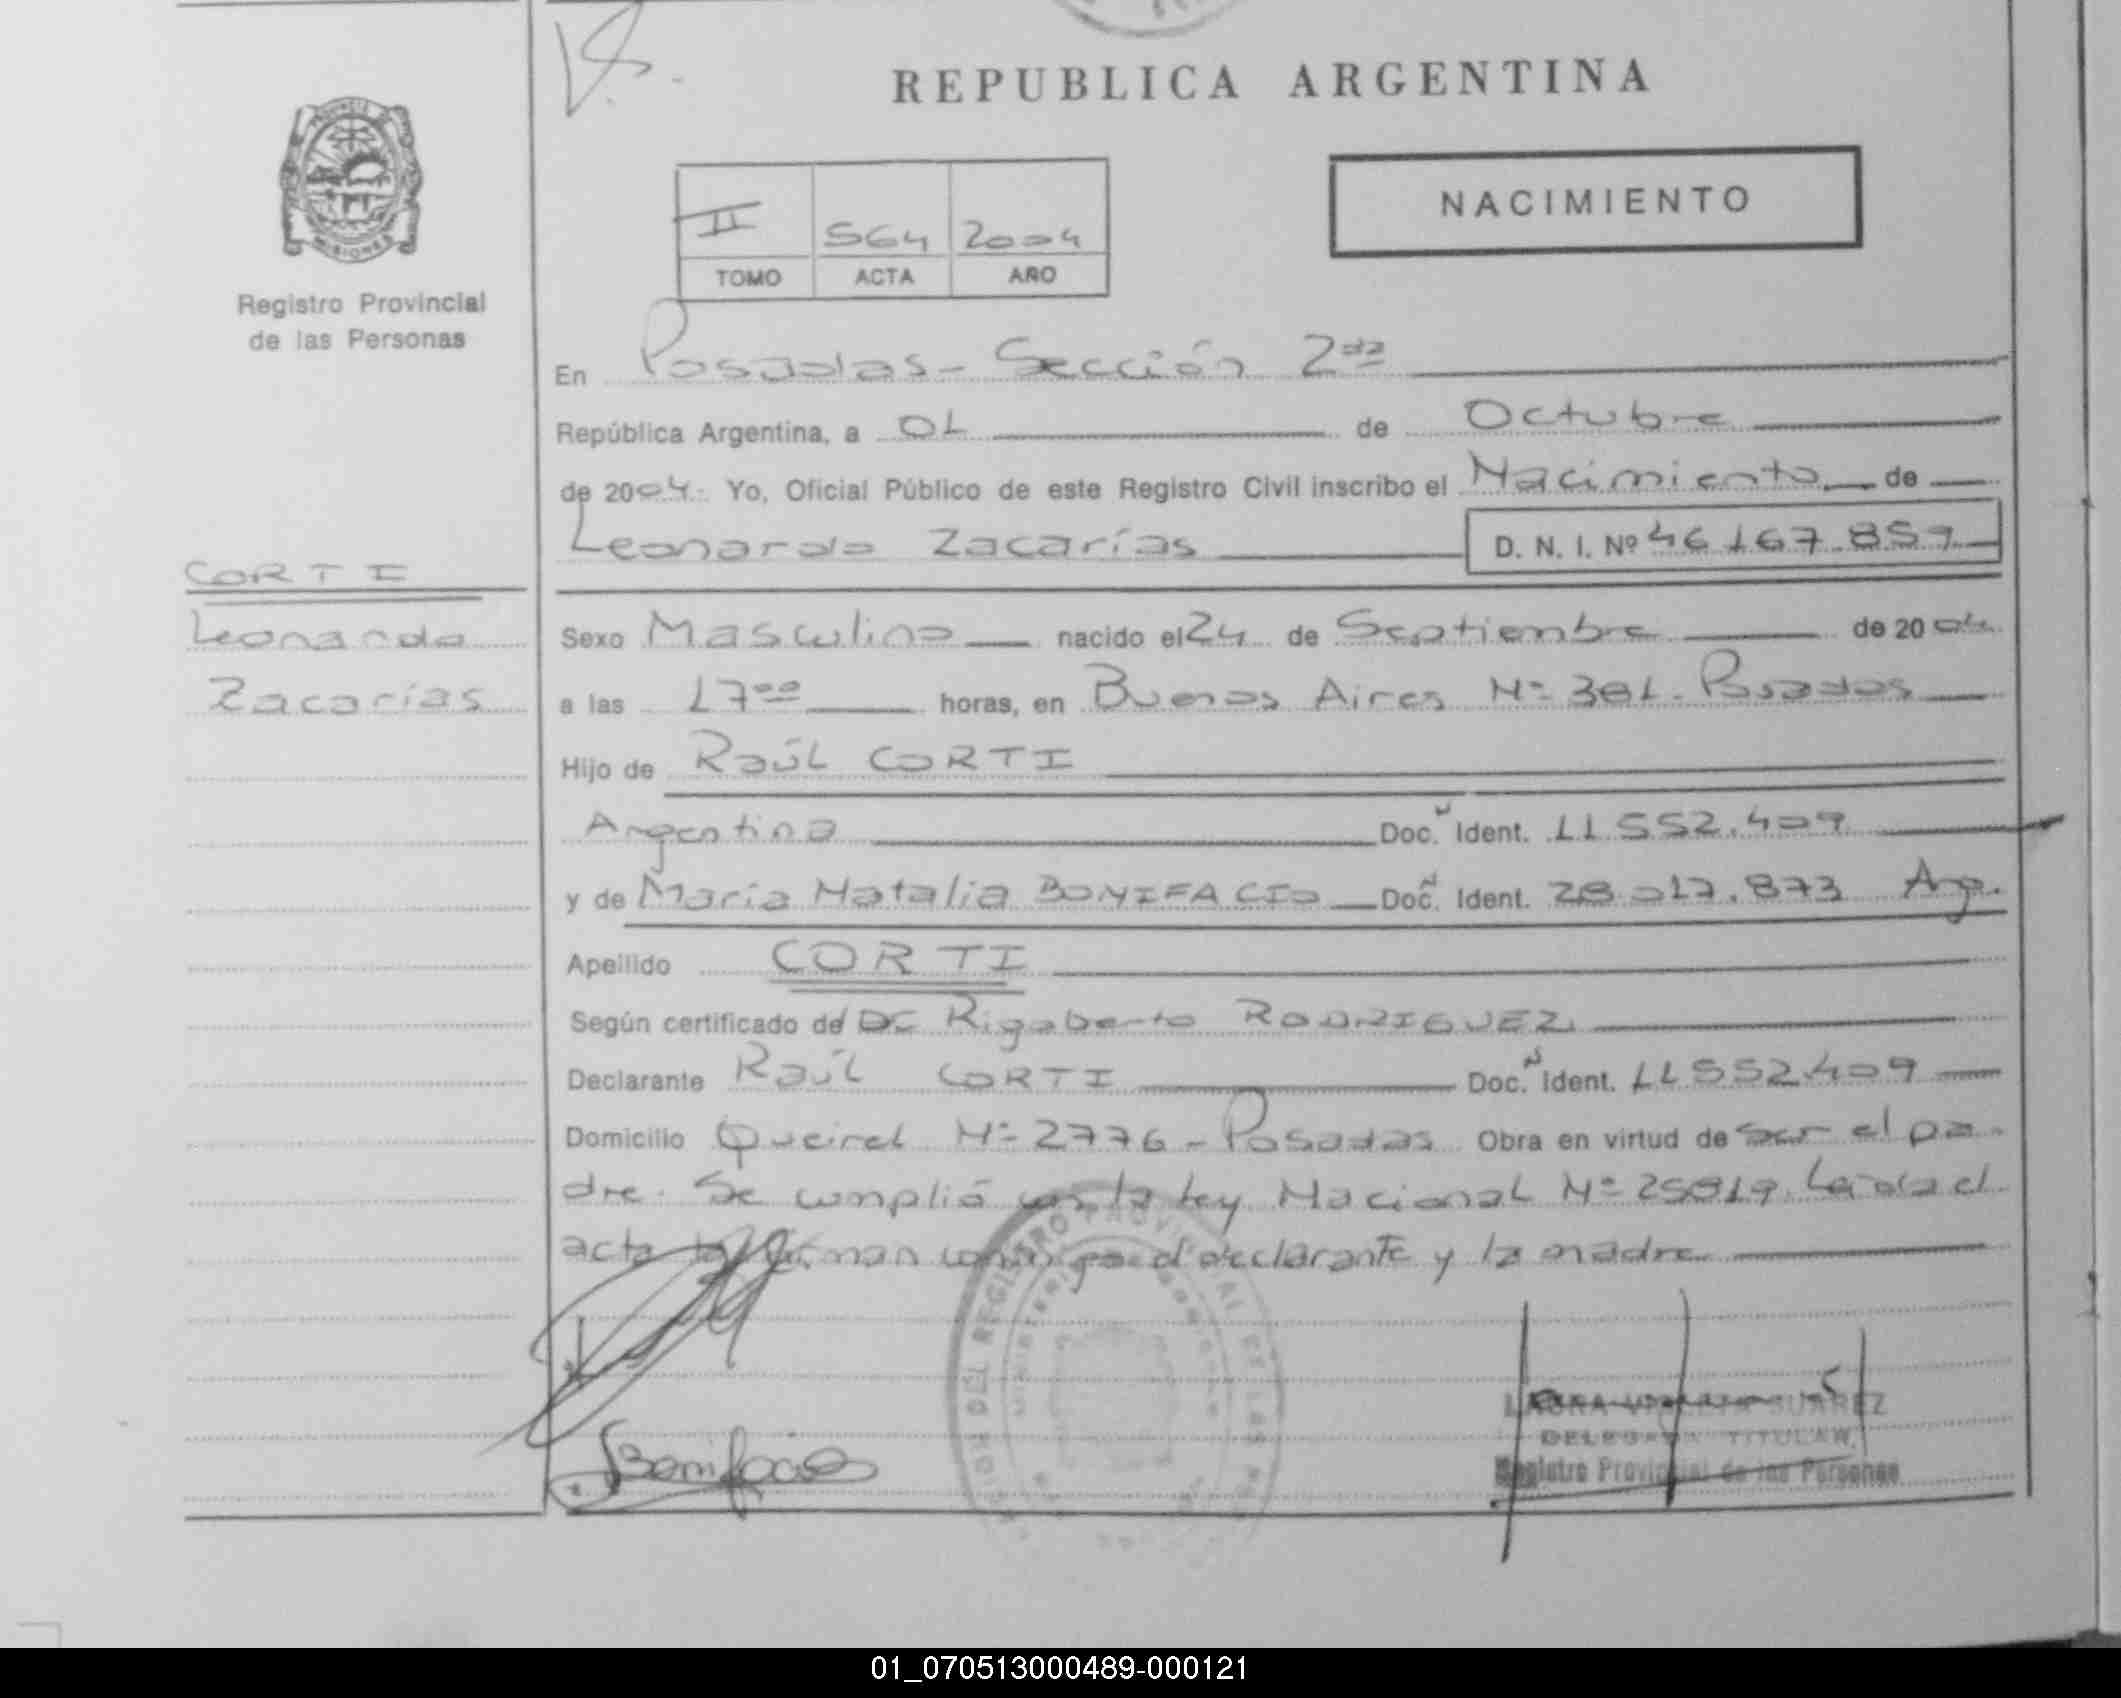 REPUBLICA ARGENTINA
NACIMIENTO
II 564 2004
TOMO ACTA AÑO
PROVINCIA DE MISIONES
Registro Provincial
de las Personas
CORTI
Leonardo
Zacarías
En Posadas - Sección 2da
República Argentina, a 01 de Octubre
de 2004. Yo, Oficial Público de este Registro Civil inscribo el Nacimiento de
Leonardo Zacarías D. N. I. Nº 46 167.859
Sexo Masculino nacido el 24 de Septiembre de 2004
a las 17 00 horas, en Buenos Aires Nº 381. Posadas
Hijo de Raúl CORTI
Argentina Doc. N Ident. 11 552.409
y de María Natalia BONIFACIO Doc. N Ident. 28 017.873 Arg.
Apellido CORTI
Según certificado de Dr Rigoberto RODRIGUEZ
Declarante Raúl CORTI Doc. N Ident. 11 552.409
Domicilio Queirel Nº 2776 - Posadas Obra en virtud de ser el pa-
dre. Se cumplió con la Ley Nacional Nº 25819. Leida el
acta la firman conmigo el declarante y la madre
Bonifacio
LAURA SUAREZ
DELEGADA TITULAR
Registro Provincial de las Personas
01_070513000489-000121